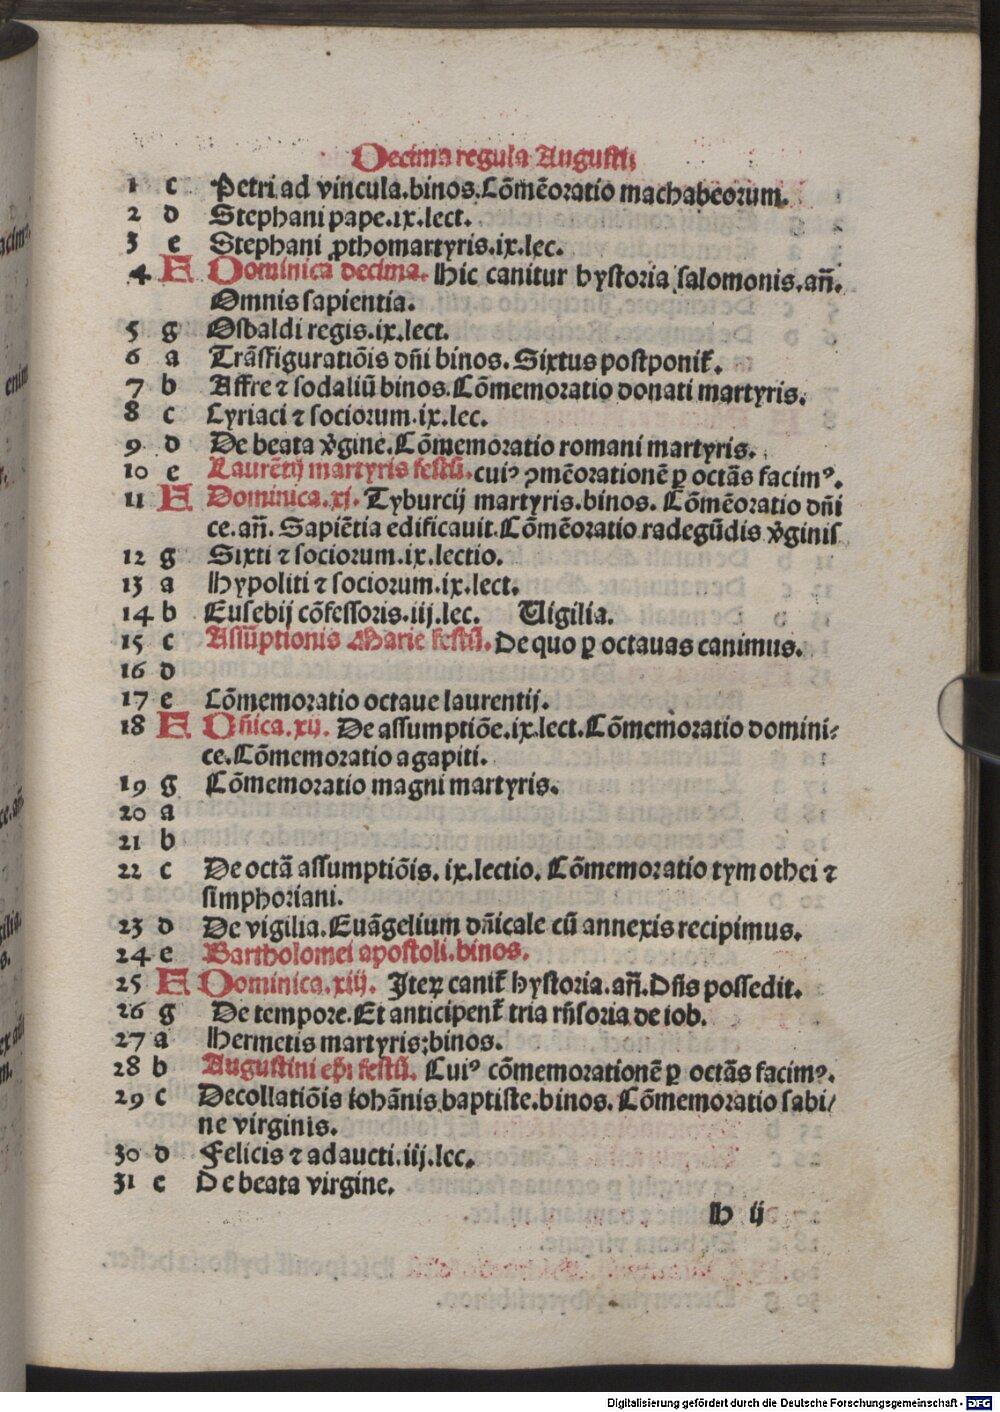 Decima regula Augusti
1 c Petri ad vincula.binos.Cõmẽoratio machabeorum.
2 d Stephani pape.ix.lect.
3 e Stephani ꝓthomartyris.ix.lec.
4 F Dominica decima. Hic canitur hystoria salomonis.añ.
Omnis sapientia.
5 g Osbaldi regis.ix.lect.
6 a Trãsfiguratiõis dñi binos. Sixtus postponit̃.
7 b Affre ⁊ sodaliũ binos.Cõmemoratio donati martyris.
8 c Cyriaci ⁊ sociorum.ix.lec.
9 d De beata v̾gine.Cõmemoratio romani martyris.
10 e Laurẽtij martyris festũ.cuiꝰ ꝯmẽorationẽ ꝑ octãs facimꝰ.
11 F Dominica.xj. Tyburcij martyris.binos. Cõmẽoratio dñi
ce.añ. Sapiẽtia edificauit.Cõmẽoratio radegũdis v̾ginis
12 g Sixti ⁊ sociorum.ix.lectio.
13 a Hypoliti ⁊ sociorum.ix.lect.
14 b Eusebij cõfessoris.iij.lec. Uigilia.
15 c Assũptionis Marie festũ.De quo ꝑ octauas canimus.
16 d
17 e Cõmemoratio octaue laurentij.
18 F Dñica.xij. De assumptiõe.ix.lect.Cõmemoratio domini⸗
ce.Cõmemoratio agapiti.
19 g Cõmemoratio magni martyris.
20 a
21 b
22 c De octã assumptiõis. ix.lectio. Cõmemoratio tymothei ⁊
simphoriani.
23 d De vigilia.Euãgelium dñicale cũ annexis recipimus.
24 e Bartholomei apostoli.binos.
25 F Dominica.xiij. Iteꝝ canit̃ hystoria.añ.Dñs possedit.
26 g De tempore.Et anticipent̃ tria rñsoria de iob.
27 a Hermetis martyris:binos.
28 b Augustini ep̃i festũ. Cuiꝰ cõmemorationẽ ꝑ octãs facimꝰ.
29 c Decollatiõis iohãnis baptiste.binos. Cõmemoratio sabi/
ne virginis.
30 d Felicis ⁊ adaucti.iij.lec.
31 e De beata virgine.
b ij
Digitalisierung gefördert durch die Deutsche Forschungsgemeinschaft - DFG